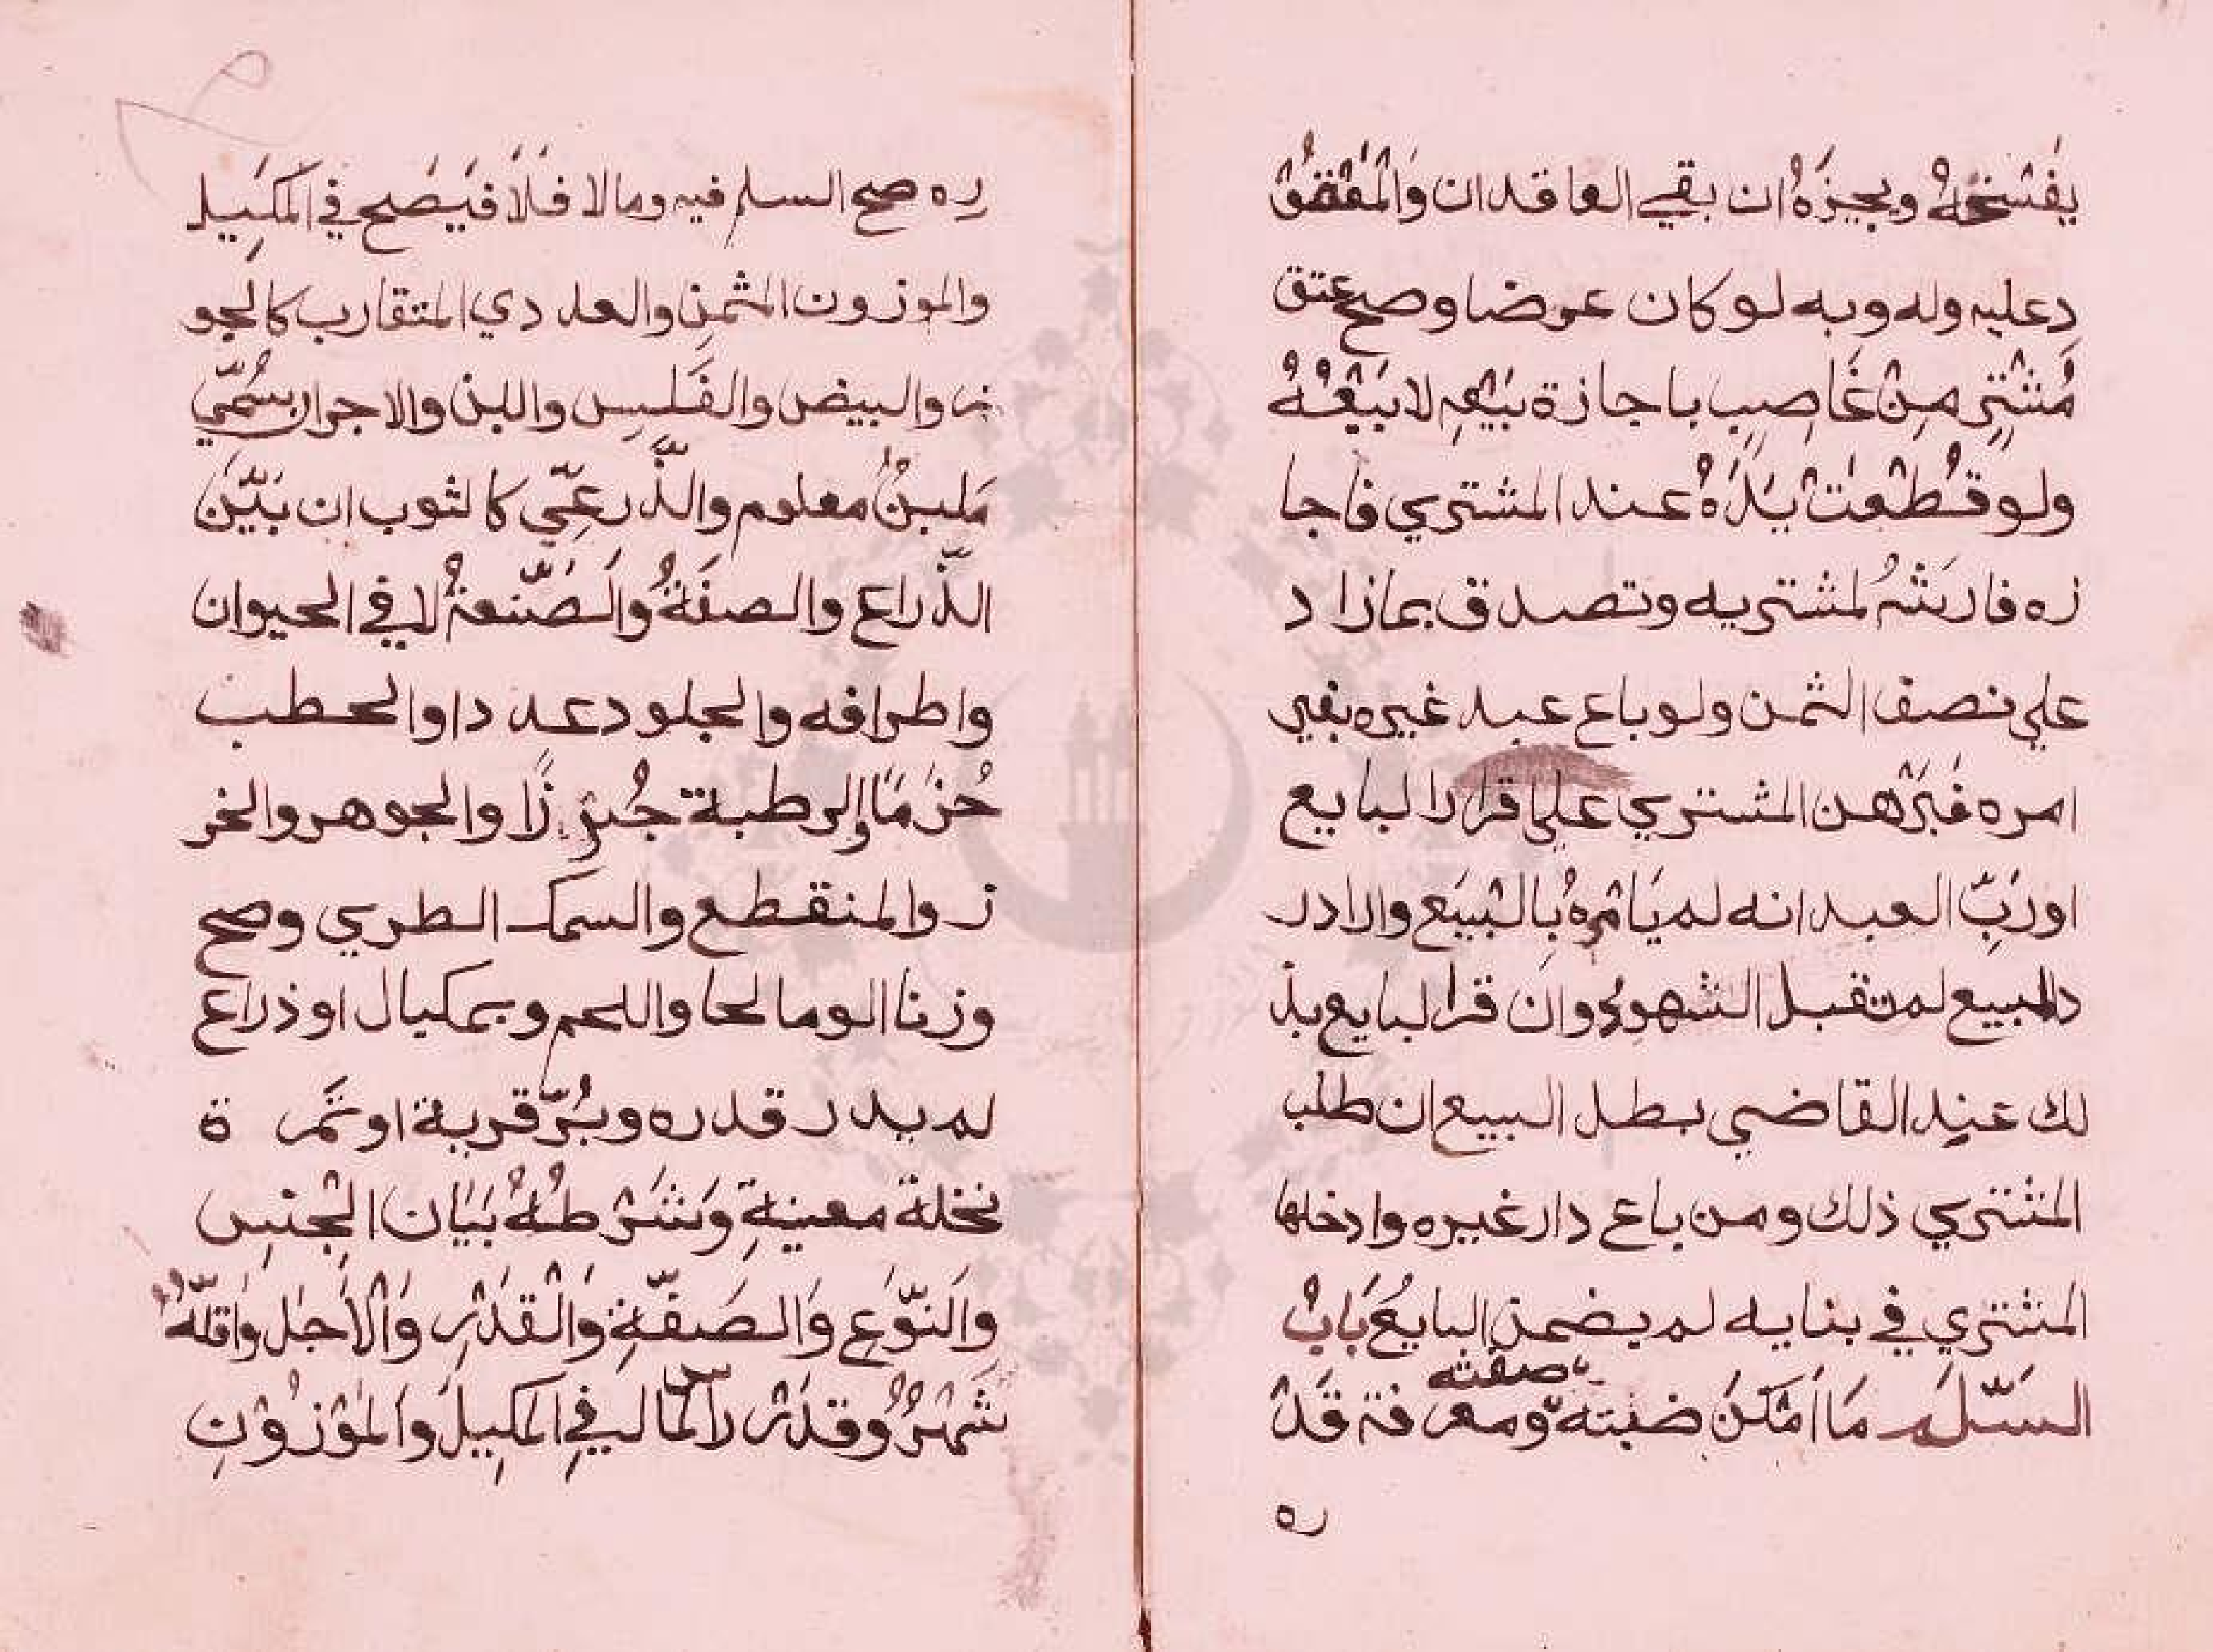 يفسخه ويجيزه ان بقي العاقدان والمعقو
دعليه وله وبه لو كان عوضا وصح عتق
مُشْتَرٍ مِنْ غَاصِبٍ باجازة بَيْعِهِ لا بَيْعُهُ
ولو قُطِعَتْ يَدُهُ عند المشتري فاجا
زه فارشه لمشتريه وتصدق بما زاد
علي نصف الثمن ولو باع عبد غيره بغير
امره فبرهن المشتري علي اقرار البايع
اورَبِّ العبد انه لم يَامُرْهُ بِالْبَيعِ وارادر
دالمبيع لم تقبل الشهود وان اقر البايع بذ
لك عند القاضي بطل البيع ان طلب
المشتري ذلك ومن باع دار غيره وادخلها
المشتري في بنايه لم يضمن البايعُ بَابُ
السَّلَم مَا اَمْكَنَ ضبته صفته ومعرفة قَدْ
ره
ره صح السلم فيه وما لا فَلَا فَيَصَح في المَكِيل
والموزون المثمن والعددي المتقارب كالجو
ز والبيض والفَلسِ واللبن والاجران سُمِّي
مَلبنٌ معلوم والذَّرعِّي كالثوب ان بَيَّنَ
الذّراع والصفَةُ والصَّنعةُ لا في الحيوان
واطرافه والجلود عددا والحطب
حُزَمًا والرطبة جُرزًا والجوهر والخر
ز والمنقطع والسمك الطري وصح
وزنا لو مالحا واللحم وبمكيال اوذراع
لم يدر قدره وبُرّ قرية او تَمر ة
نخلة معينةٍ وَشَرْطُهُ بَيَان الْجِنسِ
وَالنَّوْعِ وَالصَفّةِ وَالْقَدْرِ وَالْاَجَل وَاقلّهُ
شَهْرٌ وقدْر راس المال في المَكِيلَ وَالْمَوْزُوْنِ